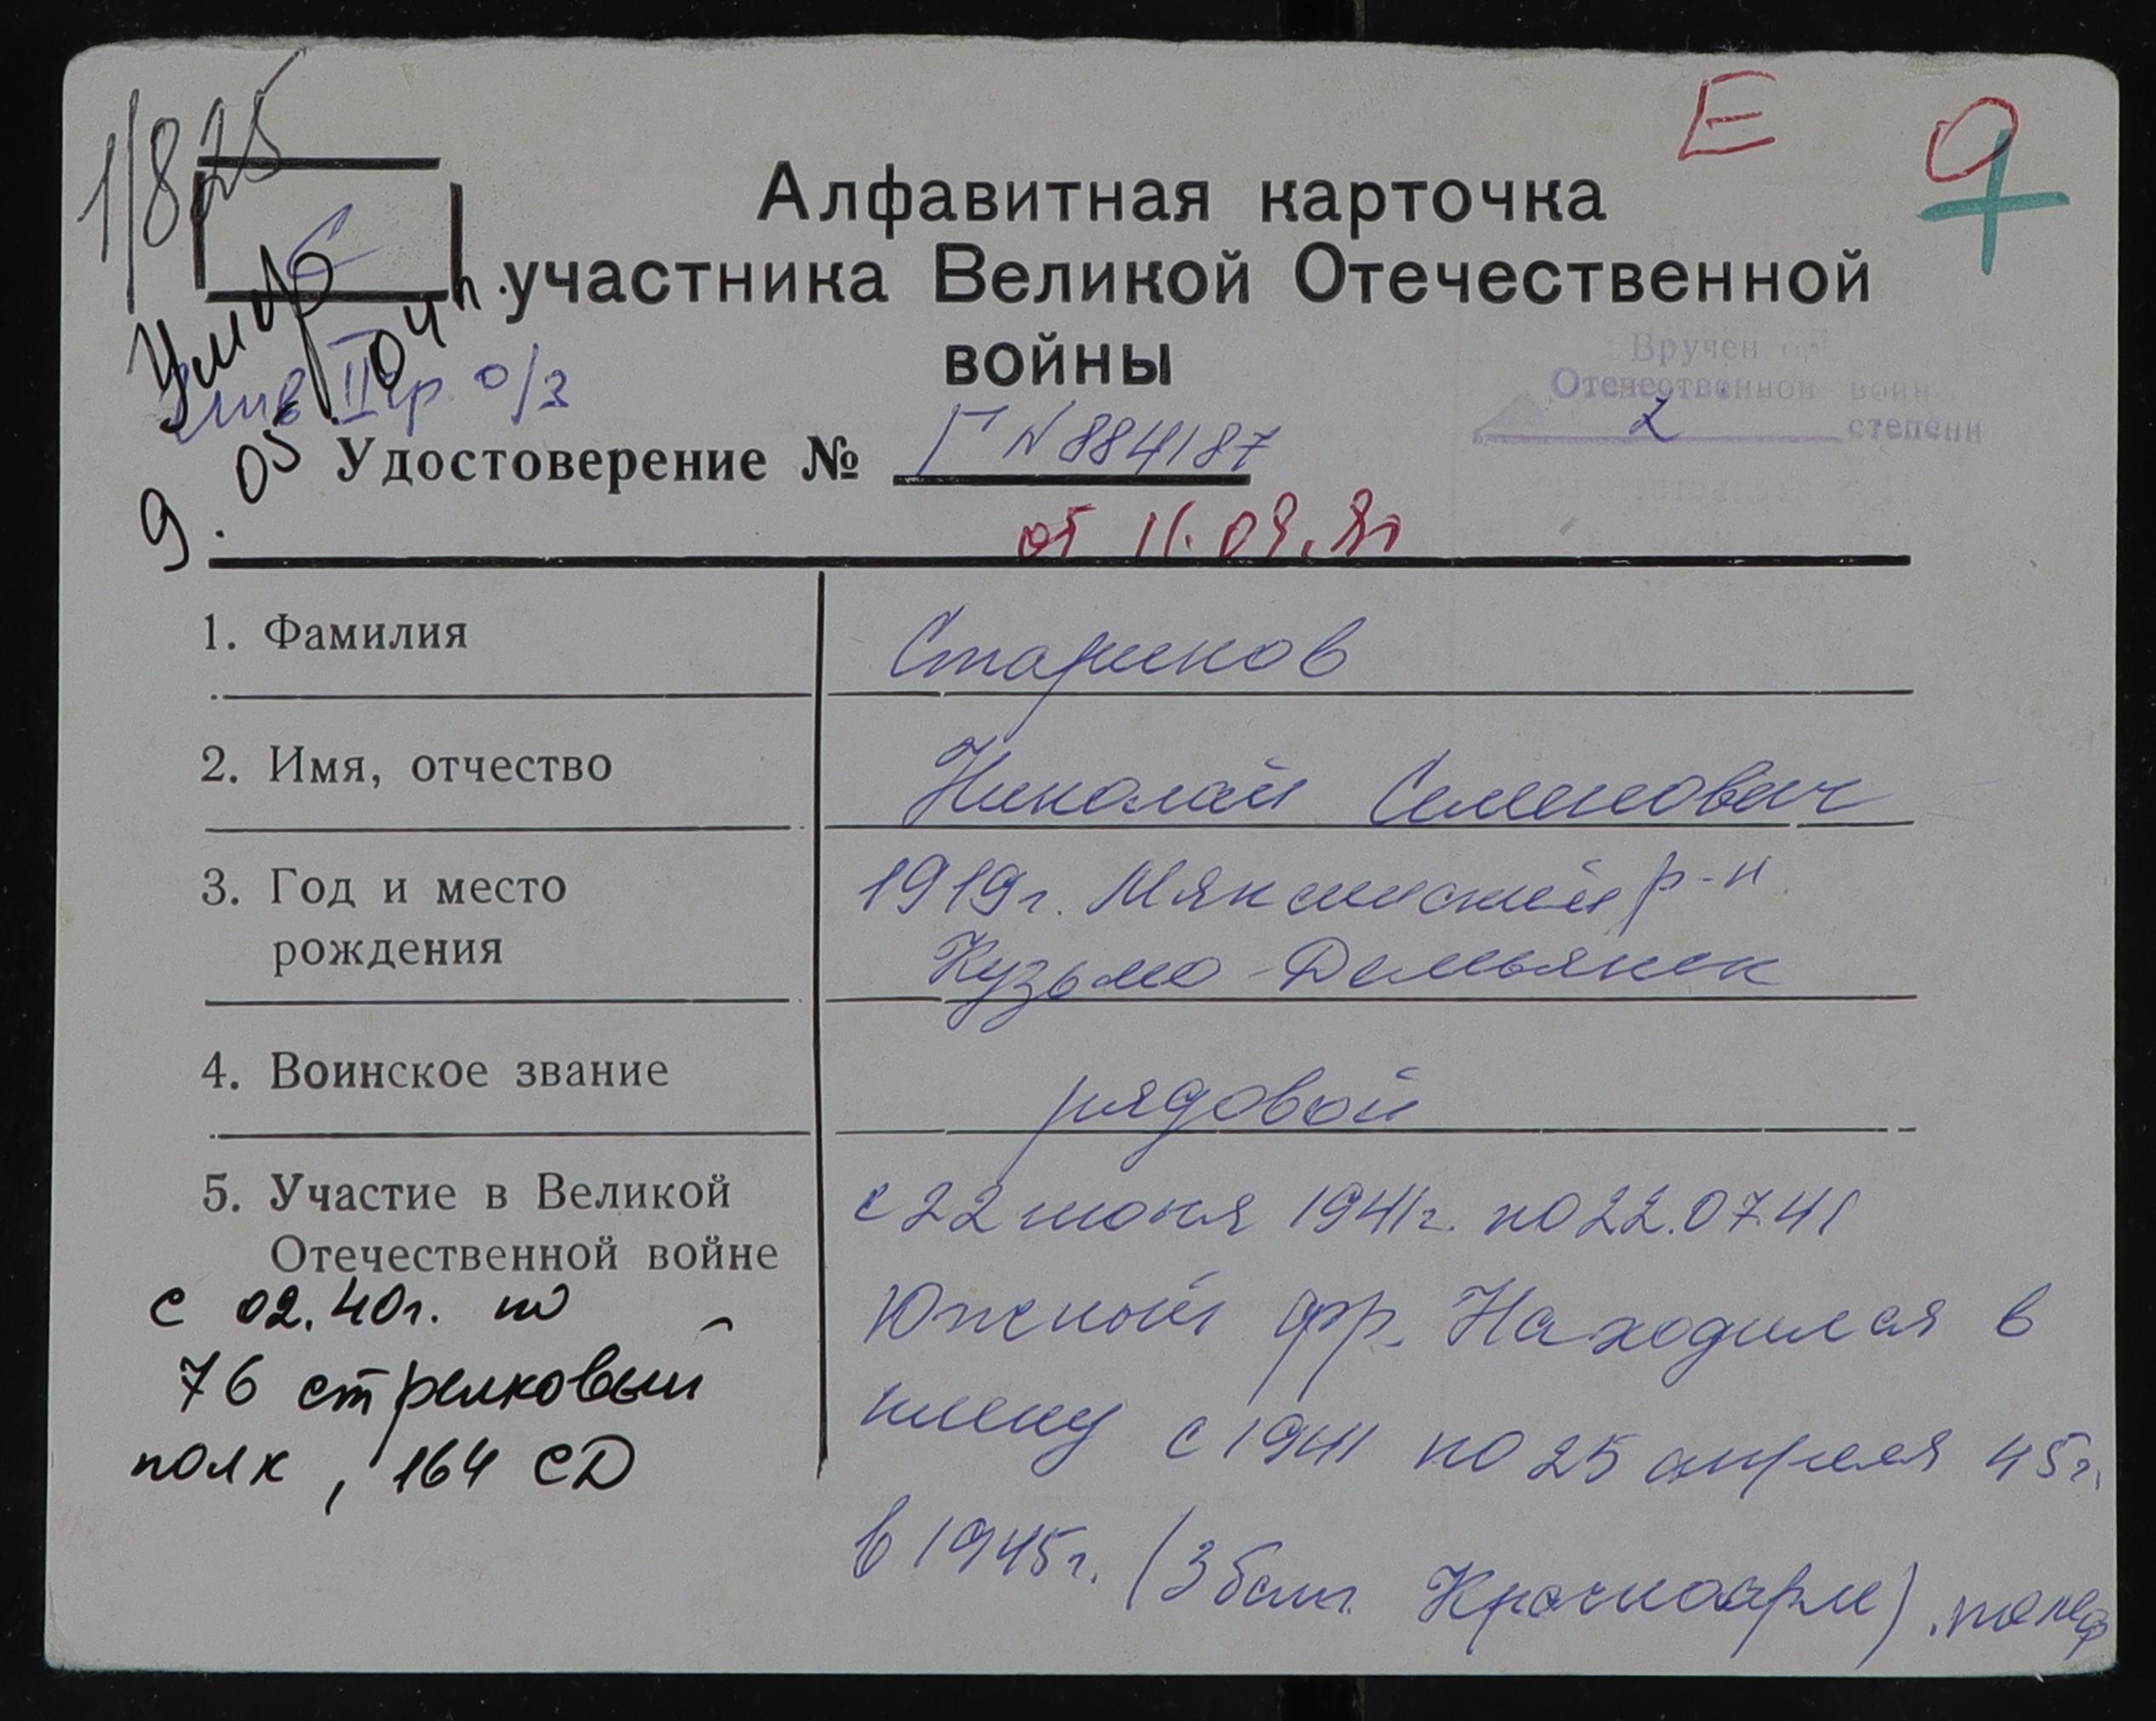 1/825
Е 9
С
Алфавитная карточка
участника Великой Отечественной
войны
Умер
9.05.04 г.
инв II гр. о/з
Вручен
Отечественной войн
2 степени
Удостоверение № Г N 884187
от 11.09.81
1. Фамилия Стариков
2. Имя, отчество Николай Семенович
3. Год и место 1919г. Мяксинский р-н.
рождения Кузьмо-Демьянск
4. Воинское звание рядовой
5. Участие в Великой с 22 июня 1941г. по 22.07.41
Отечественной войне Южный фр. Находился в
с 02.40г. по плену с 1941 по 25 апреля 45г.
76 стрелковый
полк, 164 СД
в 1945г. (3 бат. Красноарм).